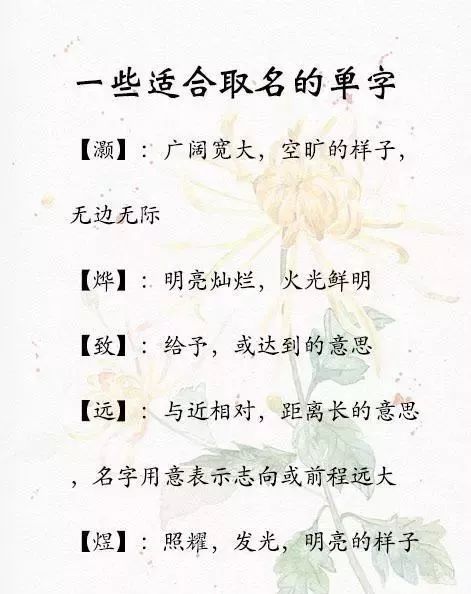 一些适合取名的单字
【灏】：广阔宽大，空旷的样子，
无边无际
【烨】：明亮灿烂，火光鲜明
【致】：给予，或达到的意思
【远】：与近相对，距离长的意思
，名字用意表示志向或前程远大
【煜】：照耀，发光，明亮的样子